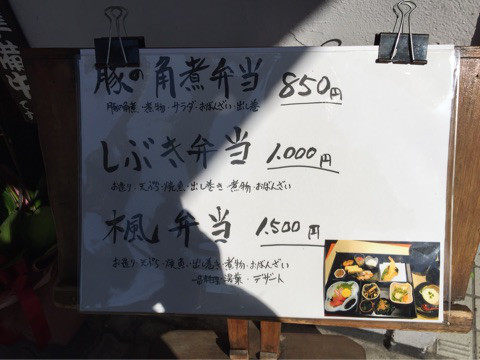 準備中
豚の角煮弁当 850円
豚角煮・煮物・サラダ・おばんざい・出し巻
しぶき弁当 1,000円
お造り・天ぷら・焼魚・出し巻き・煮物・おばんざい
楓弁当 1,500円
お造り・天ぷら・焼魚・出し巻き・煮物・おばんざい
デザート